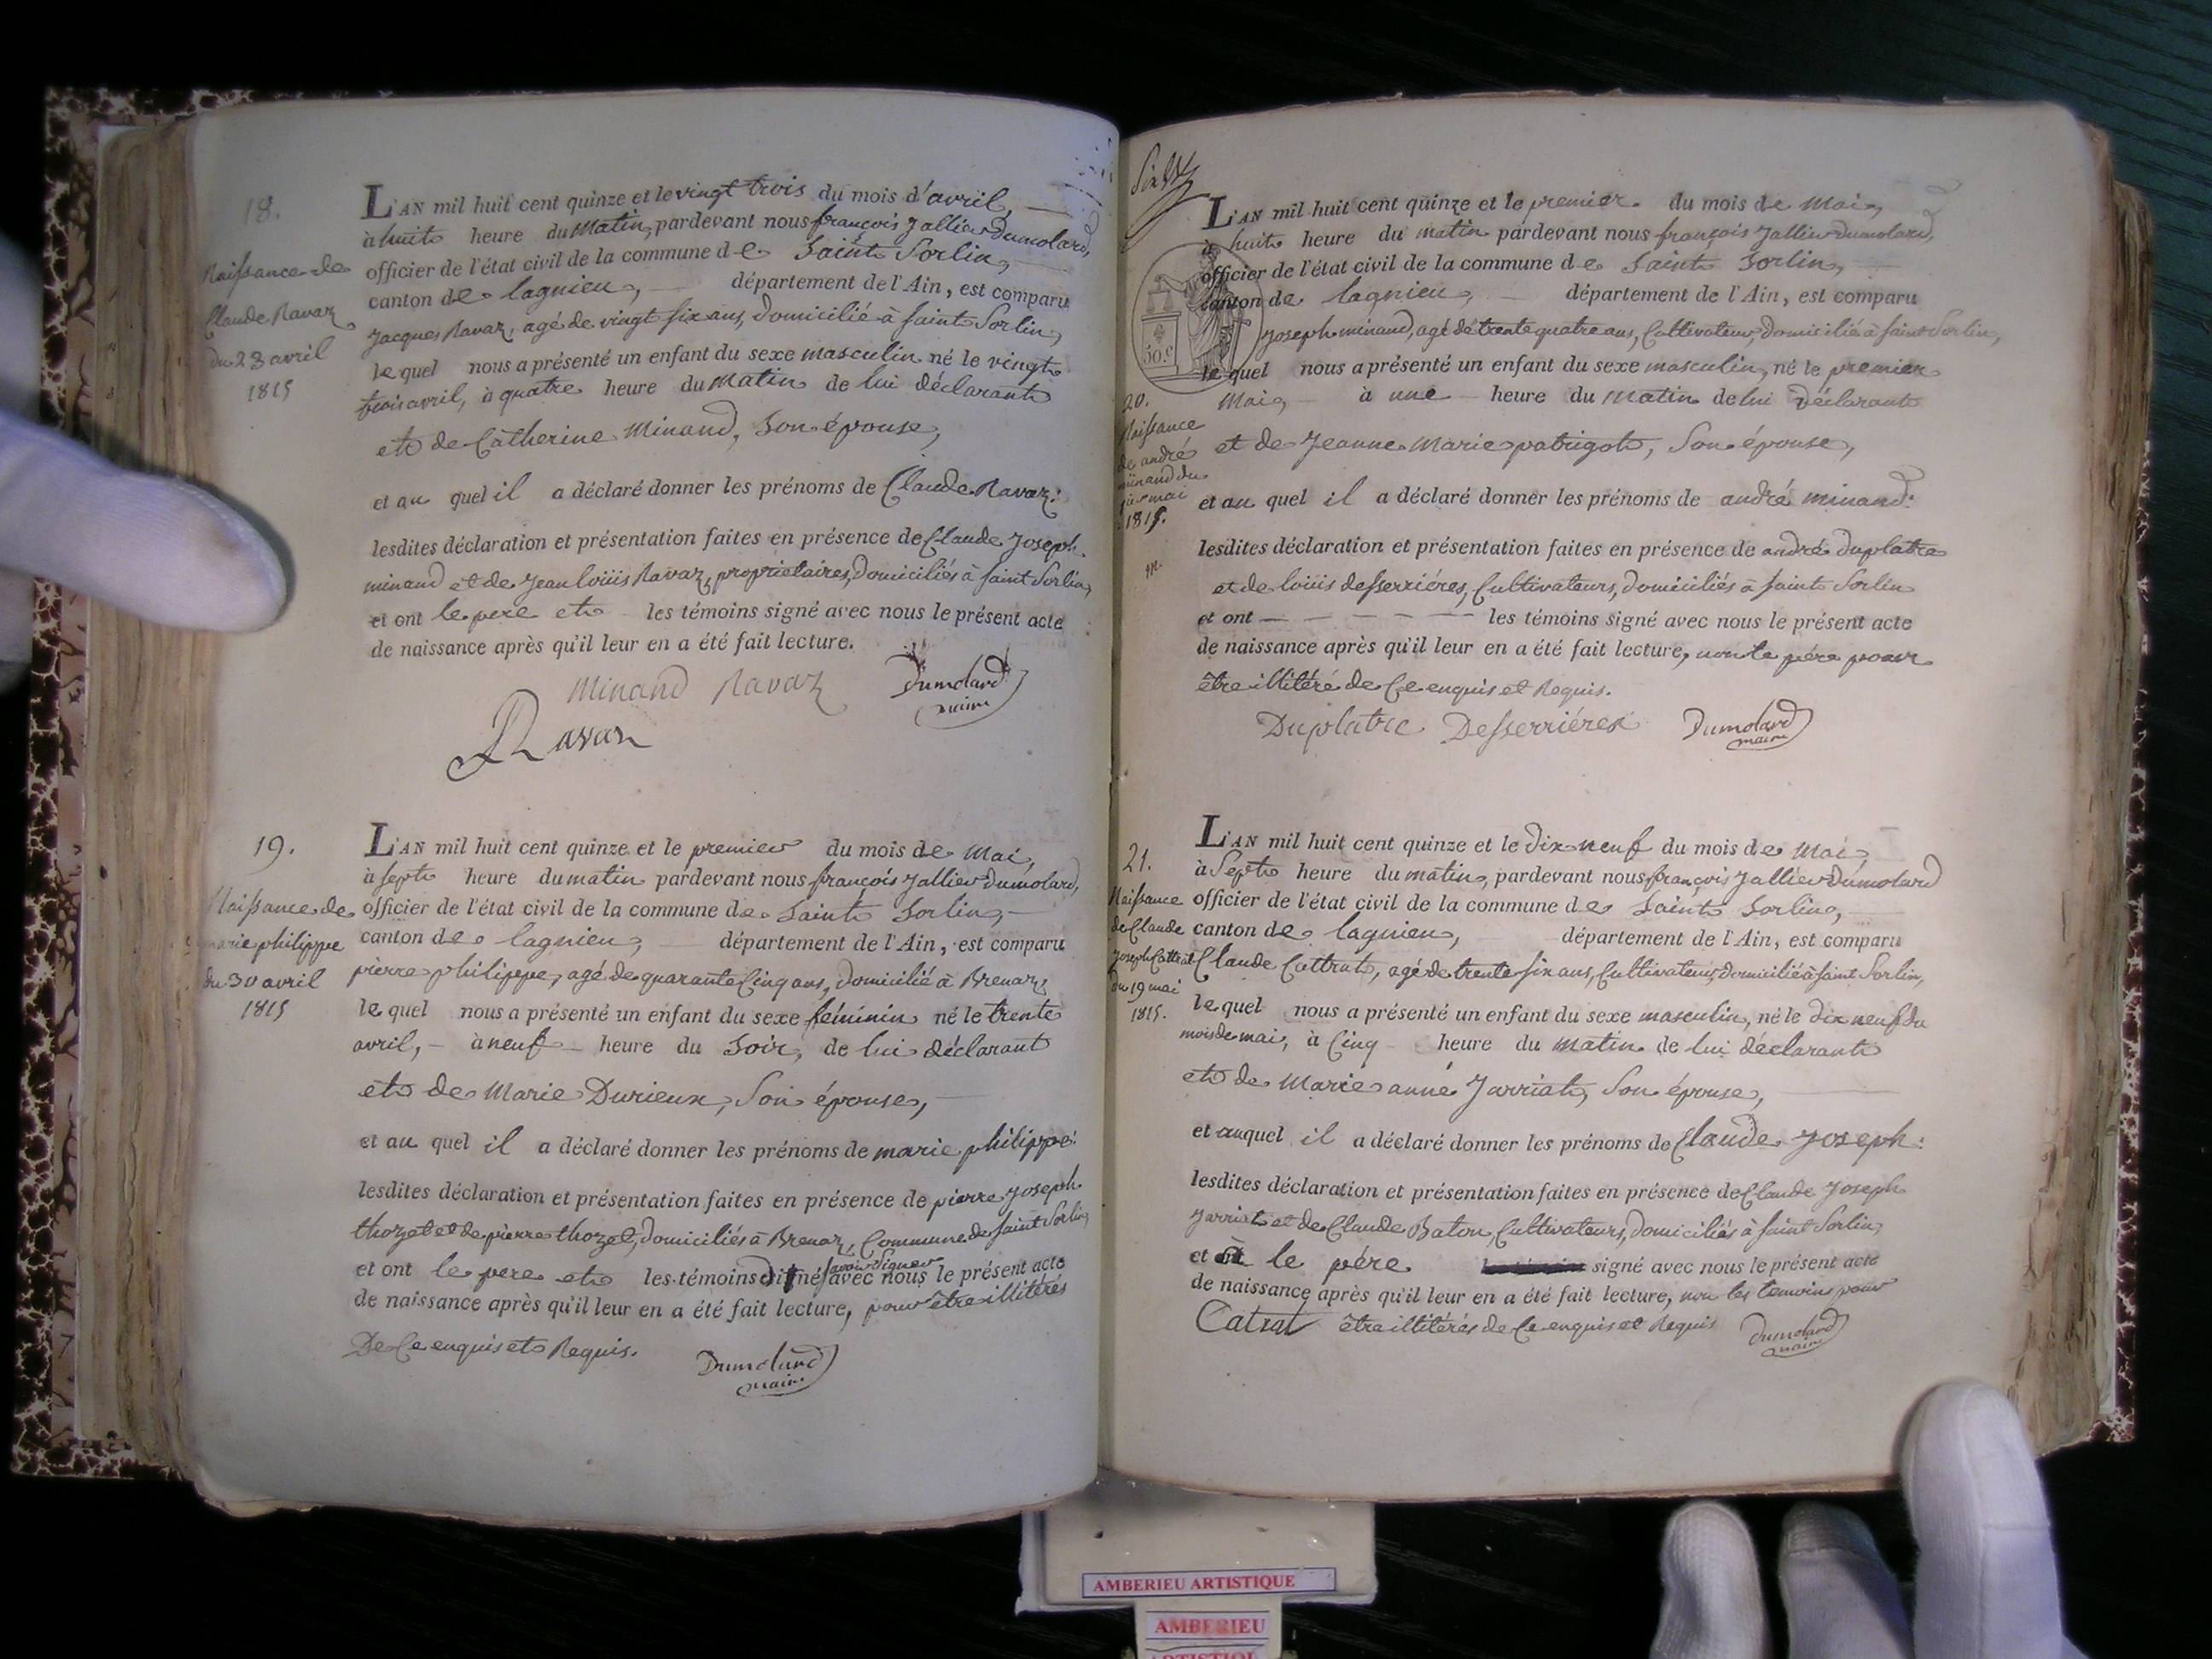 18.
Naissance de
Claude Ravaz
du 23 avril
1815
L'AN mil huit cent quinze et le vingt trois du mois d'avril,
à huit heure du matin, pardevant nous françois Jallier Dumolard,
officier de l'état civil de la commune de Saint Sorlin,
canton de lagnieu, département de l'Ain, est comparu
Jacques Ravaz, agé de vingt six ans, Domicilié à Saint Sorlin,
lequel nous a présenté un enfant du sexe masculin né le vingt
trois avril, à quatre heure du matin de lui déclarant
et de Catherine Minand, Son épouse,
et au quel il a déclaré donner les prénoms de Claude Ravaz:
lesdites déclaration et présentation faites en présence de Claude Joseph
minand et de Jean louis Ravaz, propriétaires, domiciliés à Saint Sorlin,
et ont le pere et les témoins signé avec nous le présent acte
de naissance après qu'il leur en a été fait lecture.
Minand Ravaz Dumolard
maire
Ravaz
19.
Naissance de
marie philippe
du 30 avril
1815
L'AN mil huit cent quinze et le premier du mois de Mai,
à sept heure du matin pardevant nous françois Jallier Dumolard,
officier de l'état civil de la commune de Saint Sorlin,
canton de lagnieu, département de l'Ain, est comparu
pierre philippe, agé de quarante Cinq ans, domicilié à Brenaz,
lequel nous a présenté un enfant du sexe féminin né le trente
avril, à neuf heure du Soir, de lui déclarant
et de Marie Durieux, Son épouse,
et au quel il a déclaré donner les prénoms de marie philippe:
lesdites déclaration et présentation faites en présence de pierre Joseph
thozet et de pierre thozet, domiciliés à Brenaz, Commune de Saint Sorlin,
savoir Signer
et ont le pere et les témoins dit né avec nous le présent acte
de naissance après qu'il leur en a été fait lecture, pour être illitérés
De Ce enquis et Requis.
Dumolard
maire
L'AN mil huit cent quinze et le premier du mois de Mai,
à huit heure du matin pardevant nous françois Jallier Dumolard,
officier de l'état civil de la commune de Saint Sorlin,
canton de lagnieu, département de l'Ain, est comparu
50.c
Joseph minand, agé de trente quatre ans, Cultivateur, Domicilié à Saint Sorlin,
lequel nous a présenté un enfant du sexe masculin, né le premier
Mai, à une heure du matin de lui Déclarant
20.
Naissance
de andré
minand du
1er mai
1815.
et de Jeanne Marie patrigot, Son épouse,
et au quel il a déclaré donner les prénoms de andré minand:
lesdites déclaration et présentation faites en présence de andré Duplatre
et de louis desserriéres, Cultivateurs, domiciliés à Saint Sorlin
et ont les témoins signé avec nous le présent acte
de naissance après qu'il leur en a été fait lecture, non le père pour
être illitéré de Ce enquis et Requis.
Duplatre Desserriérex Dumolard
maire
21.
Naissance
de Claude
Joseph Cattrat
du 19 mai
1815.
L'AN mil huit cent quinze et le dix neuf du mois de Mai,
à Sept heure du matin, pardevant nous françois Jallier Dumolard
officier de l'état civil de la commune de Saint Sorlin,
canton de lagnieu, département de l'Ain, est comparu
Claude Cattrat, agé de trente six ans, Cultivateur, domicilié à Saint Sorlin,
lequel nous a présenté un enfant du sexe masculin, né le dix neuf du
mois de mai, à Cinq heure du matin de lui déclarant
et de Marie anne Jarriat, Son épouse,
et auquel il a déclaré donner les prénoms de Claude Joseph:
lesdites déclaration et présentation faites en présence de Claude Joseph
Jarriat et de Claude Baton, Cultivateurs, domiciliés à Saint Sorlin,
et le pére signé avec nous le présent acte
de naissance après qu'il leur en a été fait lecture, non les temoins pour
Catrat être illitérés de Ce enquis et Requis Dumolard
maire
AMBERIEU ARTISTIQUE
AMBERIEU
ARTISTIQUE